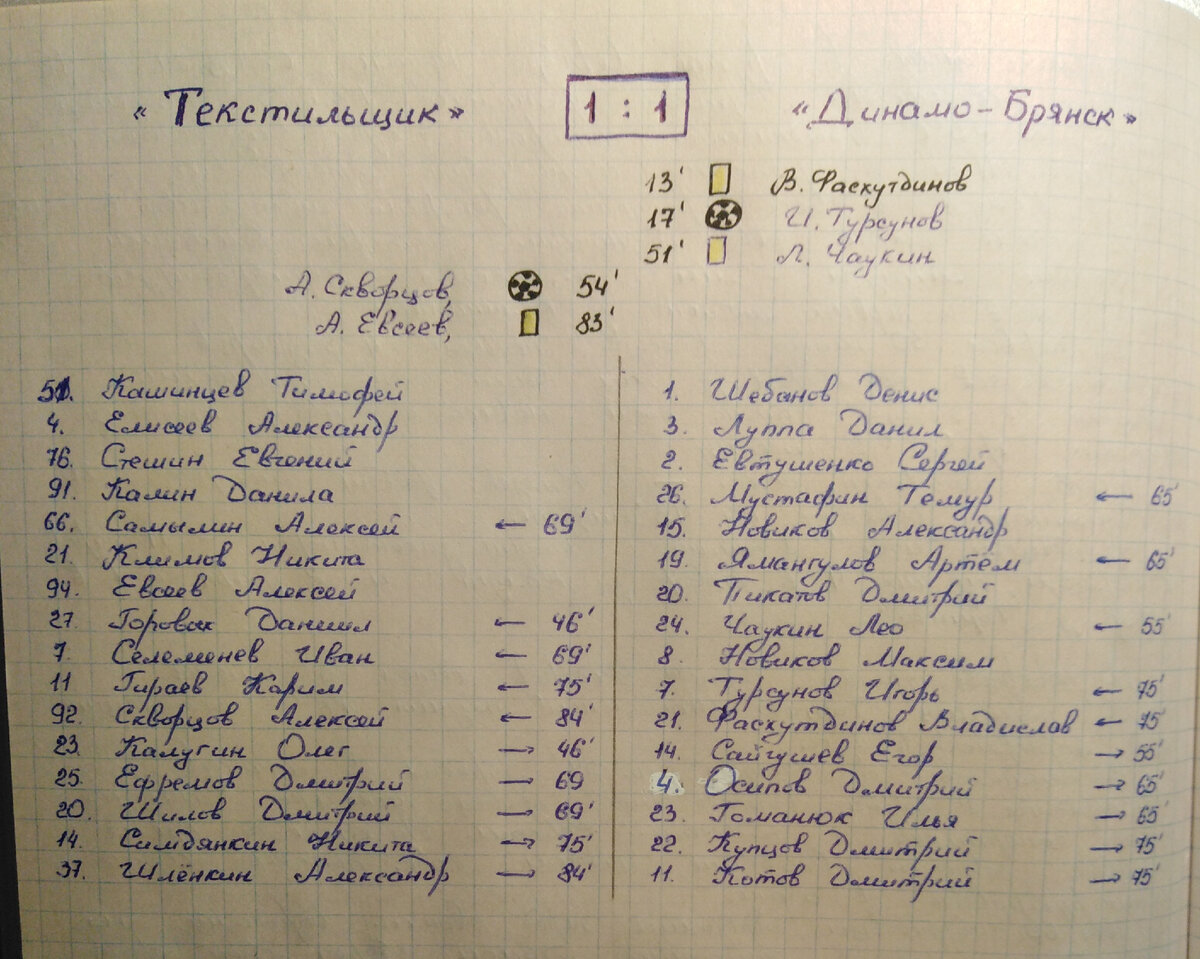 «Текстильщик» 1 : 1 «Динамо-Брянск»
13' В. Фаскутдинов
17' И. Турсунов
51' Л. Чаукин
А. Скворцов, 54'
А. Евсеев, 83'
51. Кашинцев Тимофей
4. Елисеев Александр
76. Стешин Евгений
91. Калин Данила
66. Самылин Алексей ← 69'
21. Климов Никита
94. Евсеев Алексей
27. Горовых Даниил ← 46'
7. Селеменев Иван ← 69'
11 Гираев Карим ← 75'
92. Скворцов Алексей ← 84'
23. Калугин Олег → 46'
25. Ефремов Дмитрий → 69
20. Шилов Дмитрий → 69'
14. Симдянкин Никита → 75'
37. Шлёнкин Александр → 84'
1. Шебанов Денис
3. Луппа Данил
2. Евтушенко Сергей
26. Мустафин Темур ← 65'
15. Новиков Александр
19. Ямангулов Артём ← 65'
20. Пикатов Дмитрий
24. Чаукин Лео ← 55'
8. Новиков Максим
7. Турсунов Игорь ← 75'
21. Фаскутдинов Владислав ← 75'
14. Сайгушев Егор → 55'
4. Осипов Дмитрий → 65'
23. Гоманюк Илья → 65'
22. Купцов Дмитрий → 75'
11. Котов Дмитрий → 75'